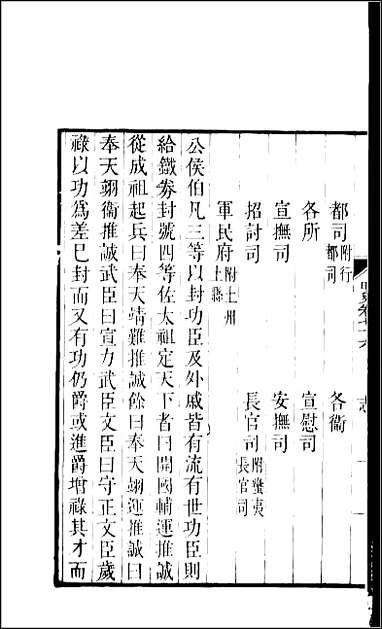 都司附行都司　各衞
各所　宣慰司
宣撫司　安撫司
招討司　長官司附蠻夷長官司
軍民府附土州土縣
公侯伯凡三等以封功臣及外戚皆有流有世功臣則
給鐵劵封號四等佐太祖定天下者曰開國輔運推誠
從成祖起兵曰奉天靖難推誠餘曰奉天翊運推誠曰
奉天翊衞推誠武臣曰宣力武臣文臣曰守正文臣歲
祿以功爲差已封而又有功仍爵或進爵增祿其才而